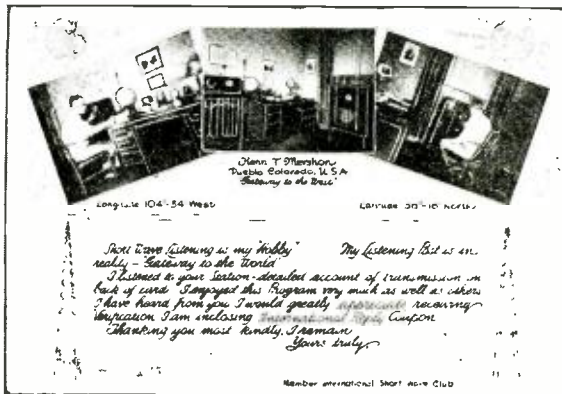 Kenn T Mershon
Pueblo Colorado, U.S.A
"Gateway to the West"
Longitude 104-34 West
Latitude North
Short Wave listening is my "Hobby" My listening Post is in
reality - "Gateway to the World"
I listened to your Station - detailed account of transmission on
back of card. I enjoyed this Program very much as well as others
I have heard from you I would greatly appreciate receiving
Verification I am inclosing International Reply Coupon
Thanking you most kindly, I remain
Yours truly,
Member International Short Wave Club